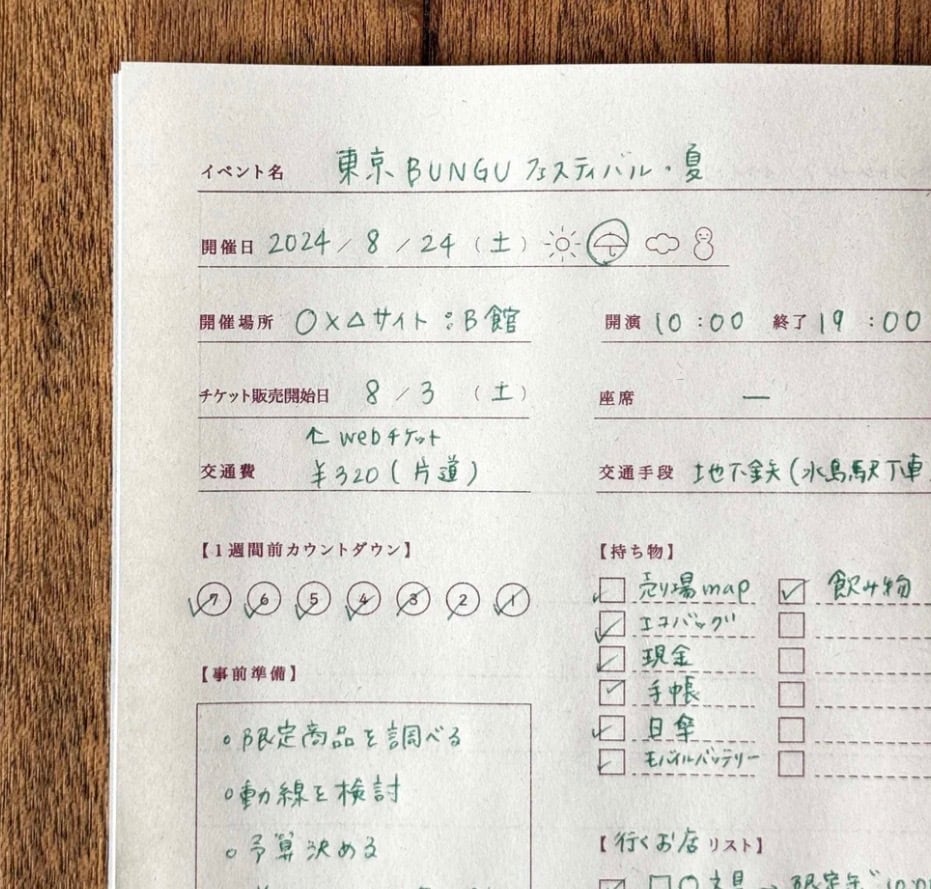 イベント名 東京BUNGUフェスティバル・夏
開催日 2024/8/24(土)
開催場所 〇×△サイト:B館 開演 10:00 終了 19:00
チケット販売開始日 8/3(土) 座席 ー
↑webチケット
交通費 ¥320(片道) 交通手段 地下鉄(水島駅下車
【1週間前カウントダウン】 【持ち物】
7 6 5 4 3 2 1 売り場map 飲み物
エコバッグ
現金
【事前準備】 手帳
日傘
○限定商品を調べる モバイルバッテリー
○動線を検討
○予算決める 【行くお店リスト】